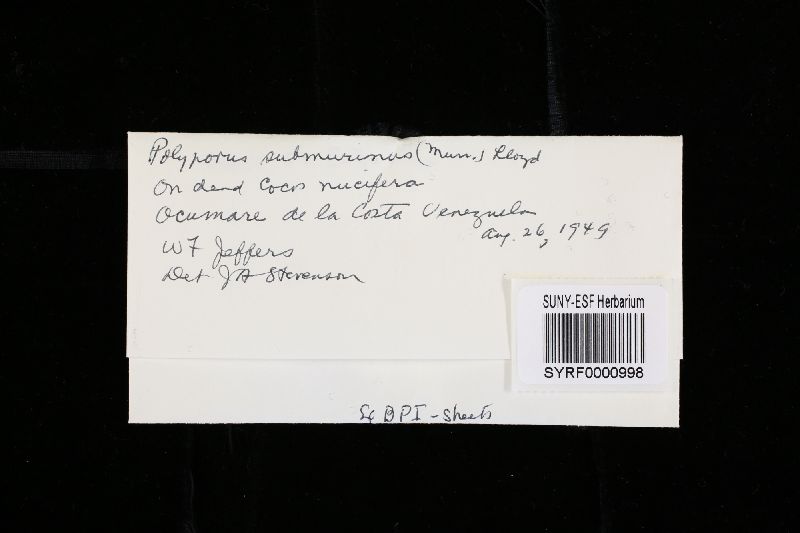 Polyporus submurinus (Murr.) Lloyd
On dead Cocos nucifera
Ocumare de la Costa Venezuela
Aug. 26, 1949
W F Jeffers
Det J A Stevenson
SUNY-ESF Herbarium
SYRF0000998
BPI - sheets